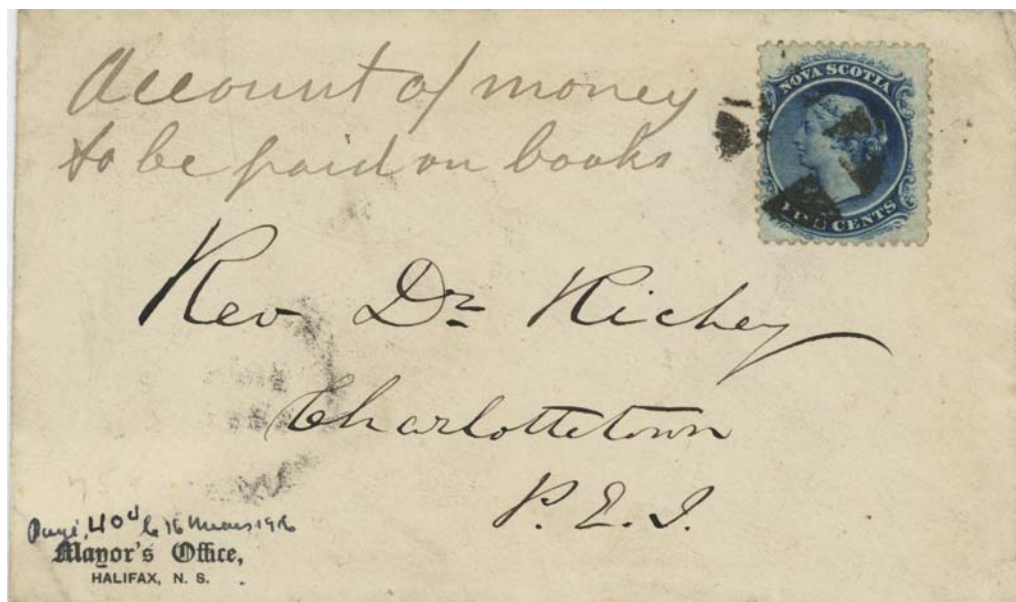 Account of money
to be paid on books
NOVA SCOTIA
FIVE CENTS
Rev Dr Richey
Charlottetown
P. E. I.
Payé, 40
Mayor's Office,
HALIFAX, N. S.